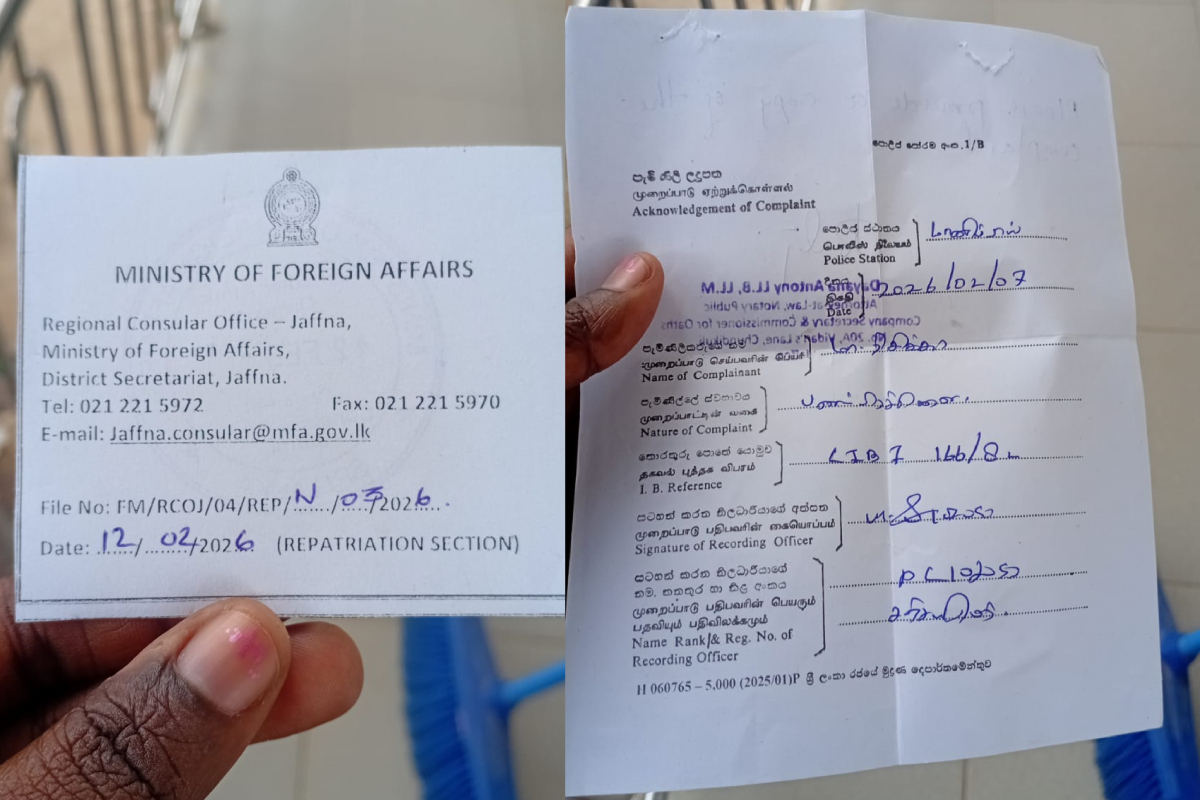 MINISTRY OF FOREIGN AFFAIRS
Regional Consular Office – Jaffna,
Ministry of Foreign Affairs,
District Secretariat, Jaffna.
Tel: 021 221 5972 Fax: 021 221 5970
E-mail: Jaffna.consular@mfa.gov.lk
File No: FM/RCOJ/04/REP/N/07/2026.
Date: 12/02/2026 (REPATRIATION SECTION)
පොලිස් පෝරම අංක.1/B
පැමිණිලි ලදුපත
முறைப்பாடு ஏற்றுக்கொள்ளல்
Acknowledgement of Complaint
පොලිස් ස්ථානය
பொலிஸ் நிலையம்
Police Station
දිනය
திகதி
Date
2026/02/07
Dayana Antony LL.B, LL.M
Attorney-at-Law, Notary Public
Company Secretary & Commissioner for Oaths
පැමිණිලිකරුගේ නම
முறைப்பாடு செய்பவரின் பெயர்
Name of Complainant
පැමිණිල්ලේ ස්වභාවය
முறைப்பாட்டின் வகை
Nature of Complaint
තොරතුරු පොතේ යොමුව
தகவல் புத்தக விபரம்
I. B. Reference
CIB I 166/8
සටහන් කරන නිලධාරියාගේ අත්සන
முறைப்பாடு பதிபவரின் கையொப்பம்
Signature of Recording Officer
සටහන් කරන නිලධාරියාගේ
නම, තනතුර හා නිල අංකය
முறைப்பாடு பதிபவரின் பெயரும்
பதவியும் பதிவிலக்கமும்
Name Rank & Reg. No. of
Recording Officer
PC
H 060765 – 5,000 (2025/01)P ශ්‍රී ලංකා රජයේ මුද්‍රණ දෙපාර්තමේන්තුව